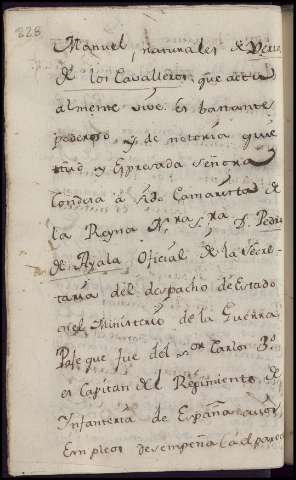 328
Manuel, naturales de Xerez
de los Cavalleros, que actu
almente vive. Es bastante
poderoso, y de notoria quie
tud, y Expresada Señora
Condesa á sido Camarista de
la Reyna Nra. Sra. D. Pedro
de Ayala, Oficial de la Secre-
taria del despacho de Estado
en el Ministerio de la Guerra
Page que fue del Sor. Carlos 3º
es Capitan del Regimiento de
Infanteria de España cuios
Empleos desempeña